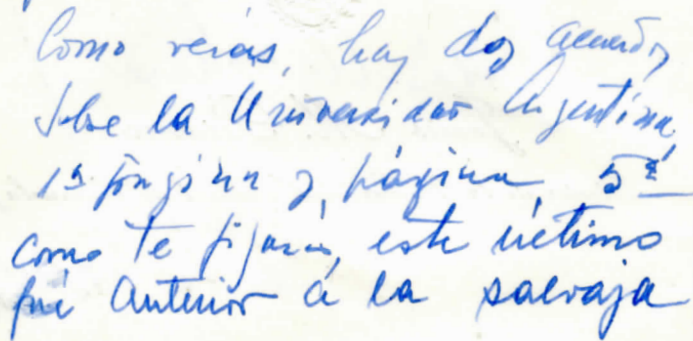 Como verás, hay dos acuerdos
sobre la Universidad Argentina,
1ª página y, página 5ª
como te fijarás, este último
fué anterior a la salvaja